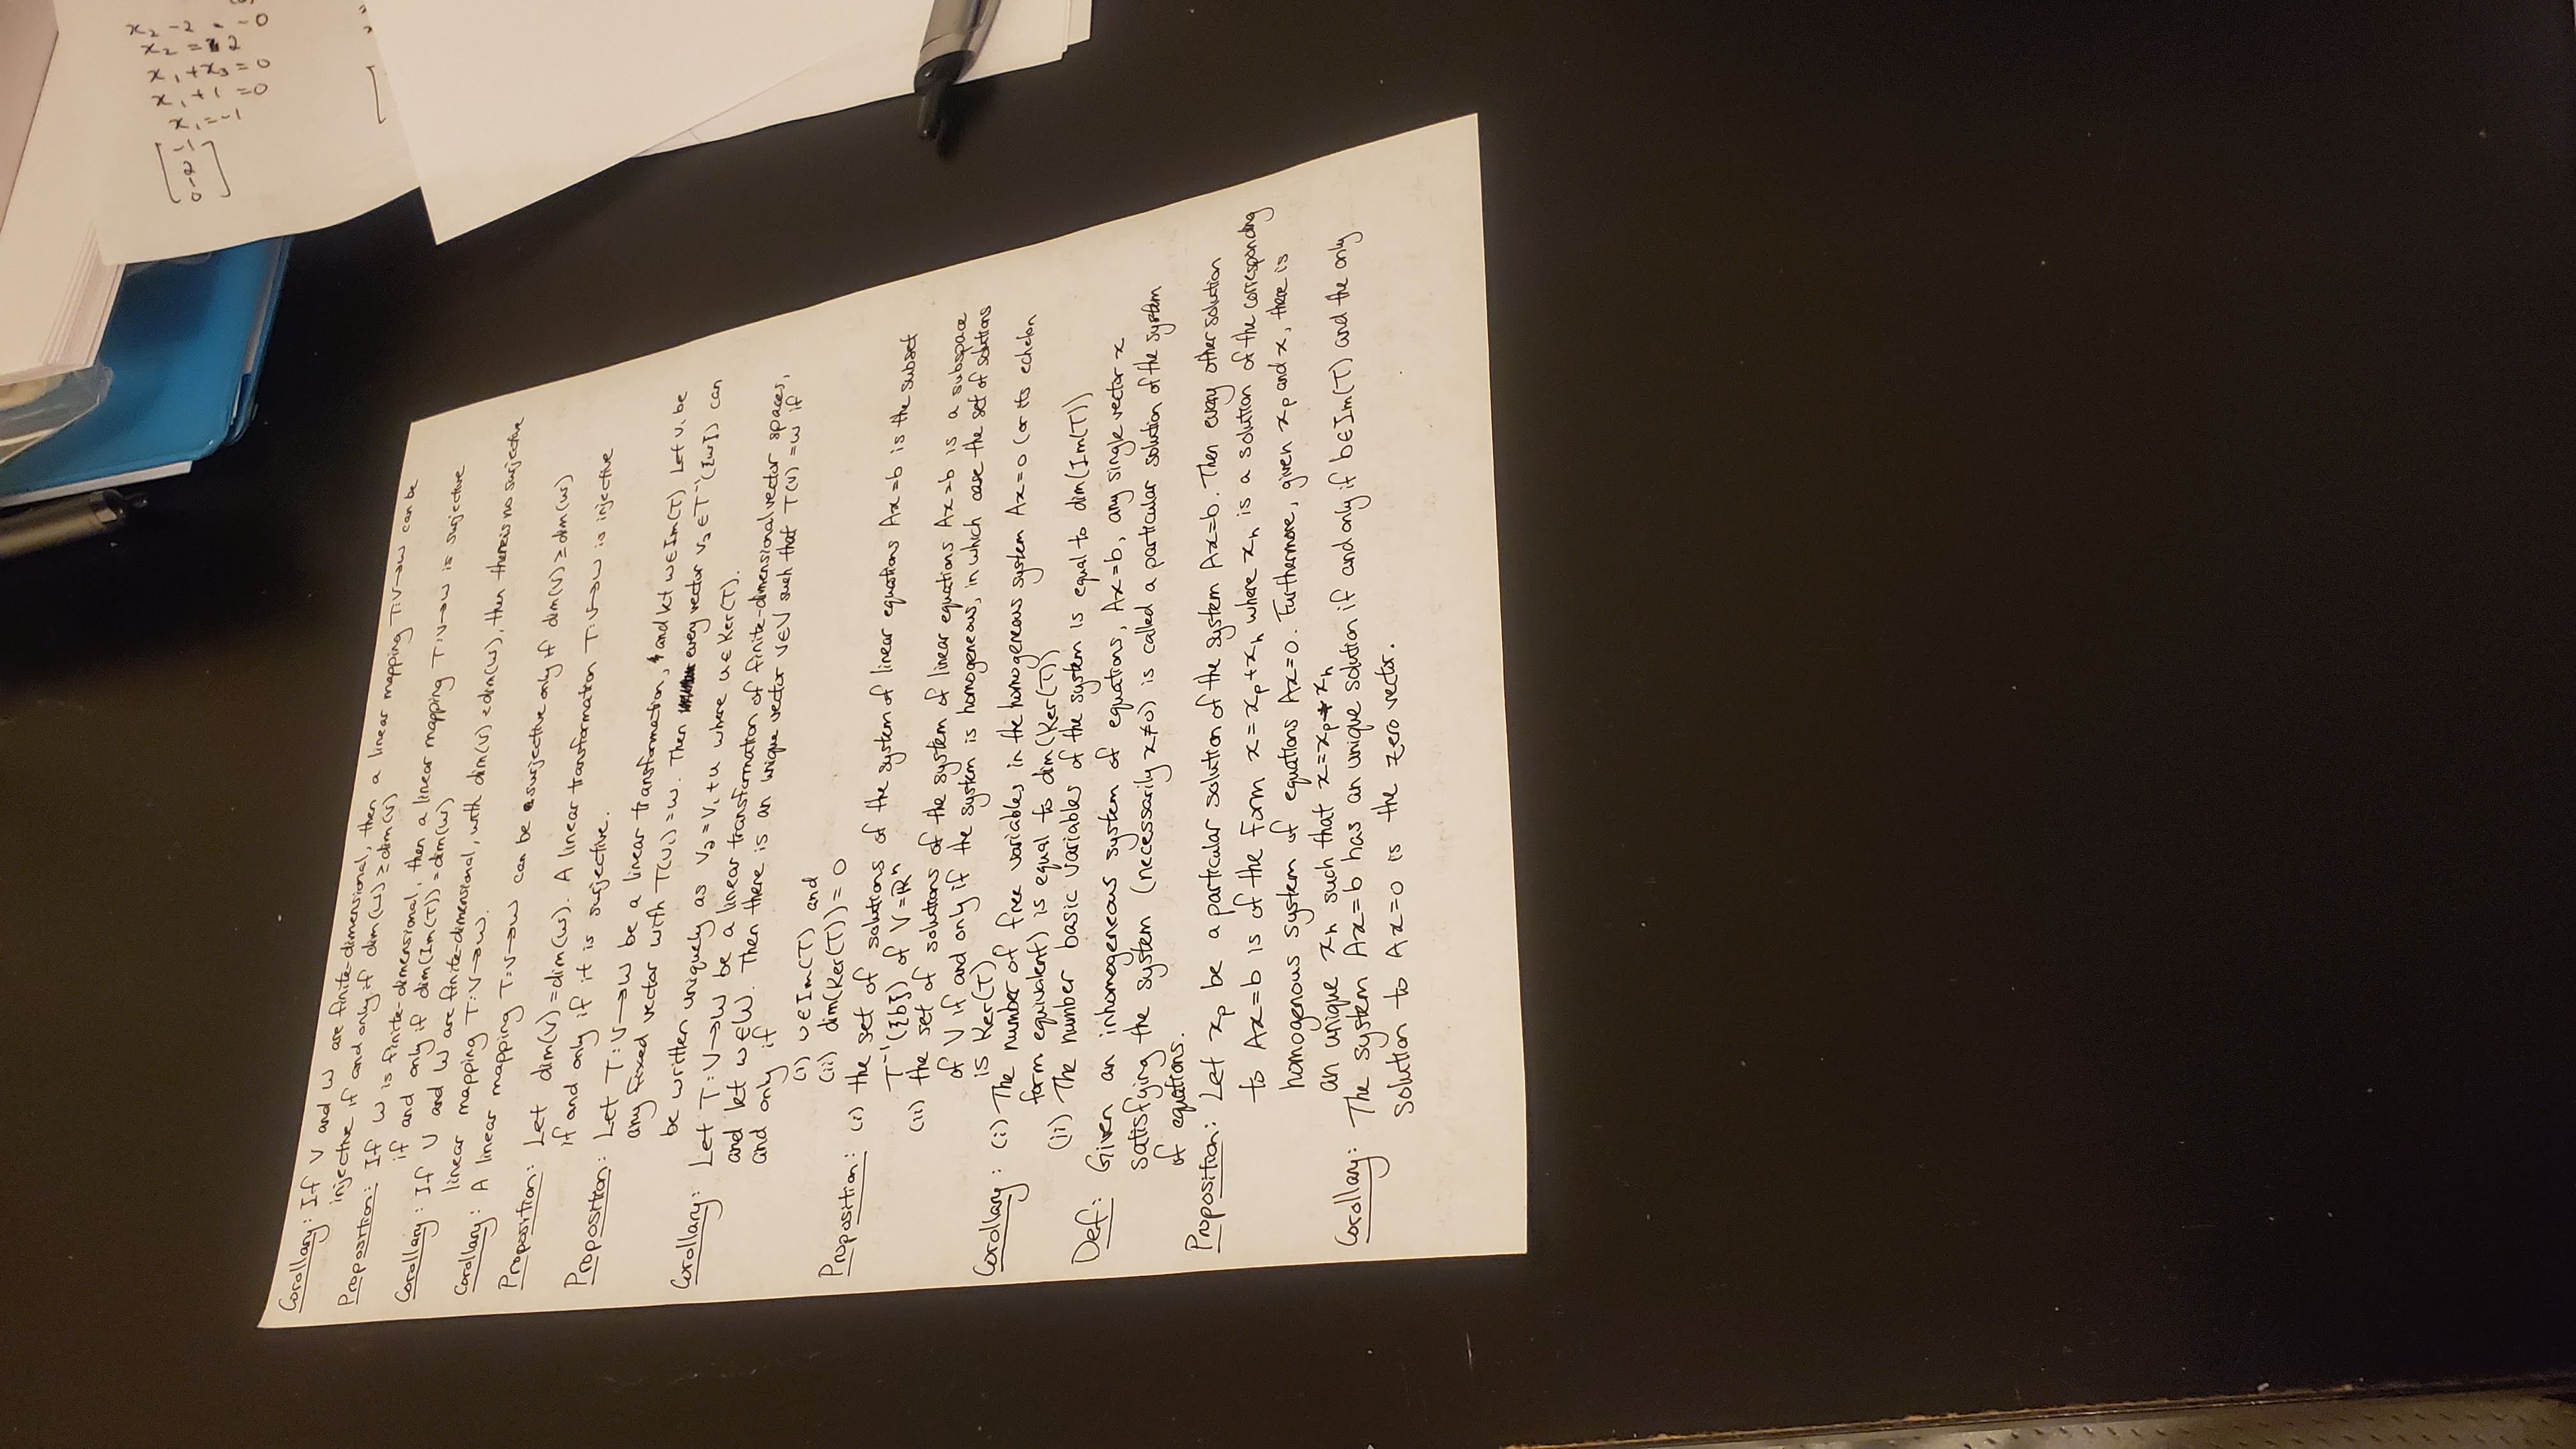 Corollary: If V and W are finite-dimensional, then a linear mapping T:V→W can be
injective if and only if dim(W) ≥ dim(V)
Proposition: If W is finite-dimensional, then a linear mapping T:V→W is surjective
if and only if dim(Im(T)) = dim(W)
Corollary: If V and W are finite-dimensional, with dim(V) < dim(W), then there is no surjective
linear mapping T:V→W.
Corollary: A linear mapping T:V→W can be surjective only if dim(V) ≥ dim(W)
Proposition: Let dim(V) = dim(W). A linear transformation T:V→W is injective
if and only if it is surjective.
Proposition: Let T:V→W be a linear transformation, and let w∈Im(T) Let v₁ be
any fixed vector with T(v₁) = w. Then every vector v₂ ∈ T⁻¹({w}) can
be written uniquely as v₂ = v₁ + u where u ∈ Ker(T).
Corollary: Let T:V→W be a linear transformation of finite-dimensional vector spaces,
and let w∈W. Then there is an unique vector v∈V such that T(v) = w if
and only if
(i) v∈Im(T) and
(ii) dim(Ker(T)) = 0
Proposition: (i) the set of solutions of the system of linear equations Ax=b is the subset
T⁻¹({b}) of V=ℝⁿ
(ii) the set of solutions of the system of linear equations Ax=b is a subspace
of V if and only if the system is homogeneous, in which case the set of solutions
is Ker(T)
Corollary: (i) The number of free variables in the homogeneous system Ax=0 (or its echelon
form equivalent) is equal to dim(Ker(T))
(ii) The number basic variables of the system is equal to dim(Im(T))
Def: Given an inhomogeneous system of equations, Ax=b, any single vector x
satisfying the system (necessarily x≠0) is called a particular solution of the system
of equations.
Proposition: Let xₚ be a particular solution of the system Ax=b. Then every other solution
to Ax=b is of the form x=xₚ+xₕ where xₕ is a solution of the corresponding
homogenous system of equations Ax=0. Furthermore, given xₚ and x, there is
an unique xₕ such that x=xₚ+xₕ
Corollary: The system Ax=b has an unique solution if and only if b∈Im(T) and the only
solution to Ax=0 is the zero vector.
x₁+x₃=0
x₁+1=0
x₁=-1